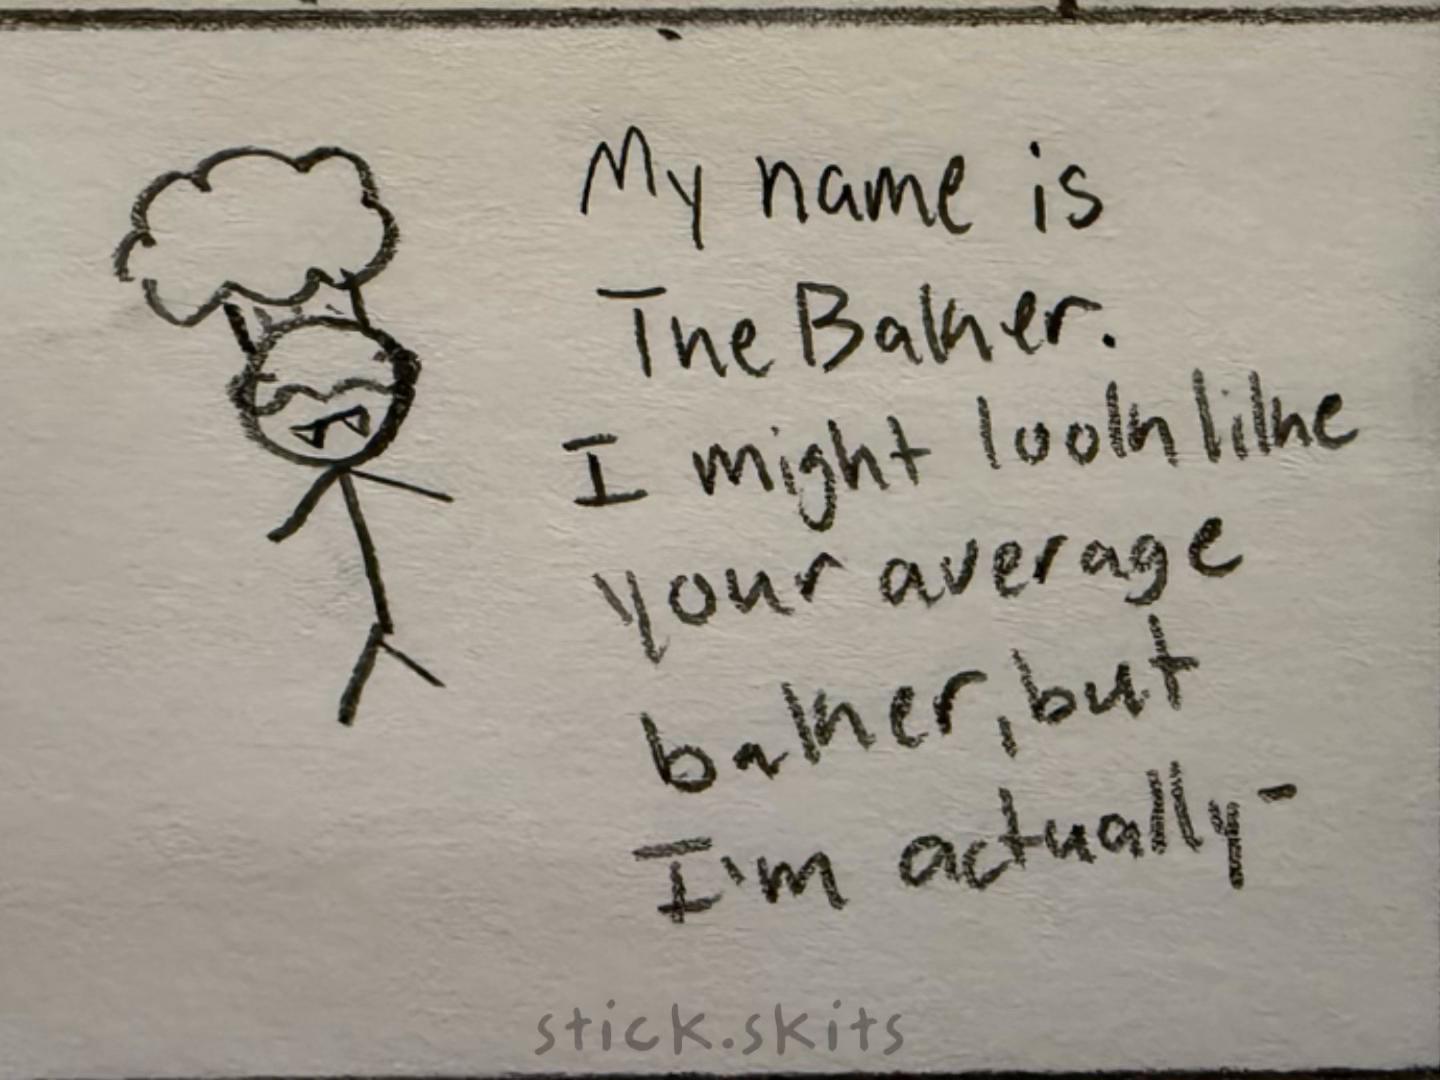 My name is
The Baker.
I might look like
your average
baker, but
I'm actually-
stick.skits